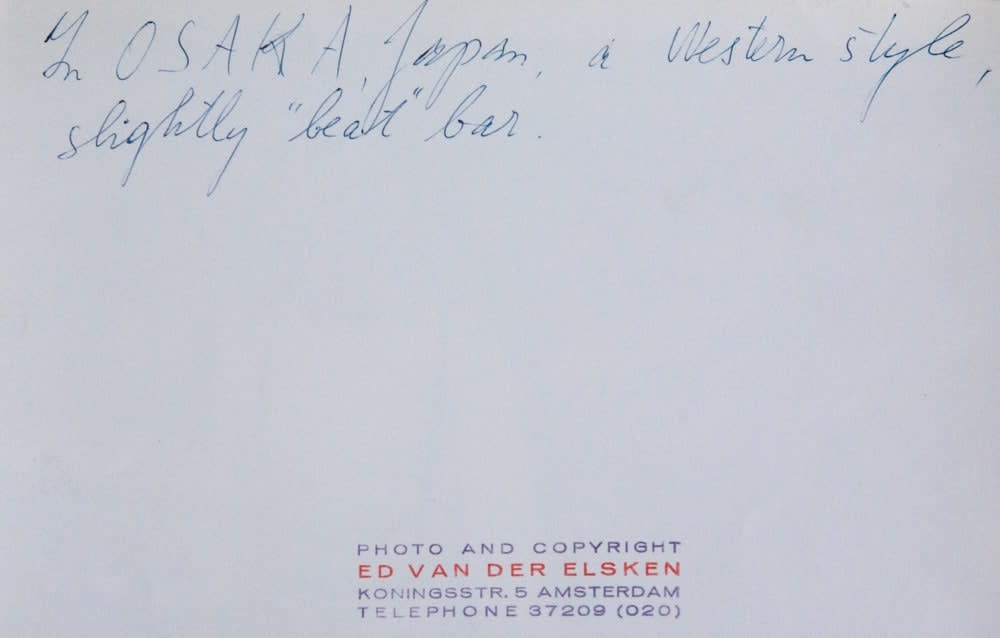 In OSAKA, Japan, a Western style,
slightly "beat" bar.
PHOTO AND COPYRIGHT
ED VAN DER ELSKEN
KONINGSSTR. 5 AMSTERDAM
TELEPHONE 37209 (020)